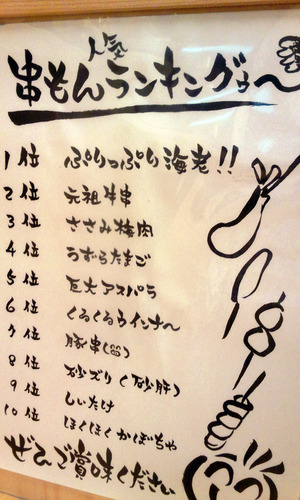 人気
串もんランキングゥ〜
1位 ぷりっぷり海老!!
2位 元祖牛串
3位 ささみ梅肉
4位 うずらたまご
5位 巨大アスパラ
6位 くるくるウインナ〜
7位 豚串(塩)
8位 砂ズリ(砂肝)
9位 しいたけ
10位 ほくほくかぼちゃ
ぜひご賞味ください